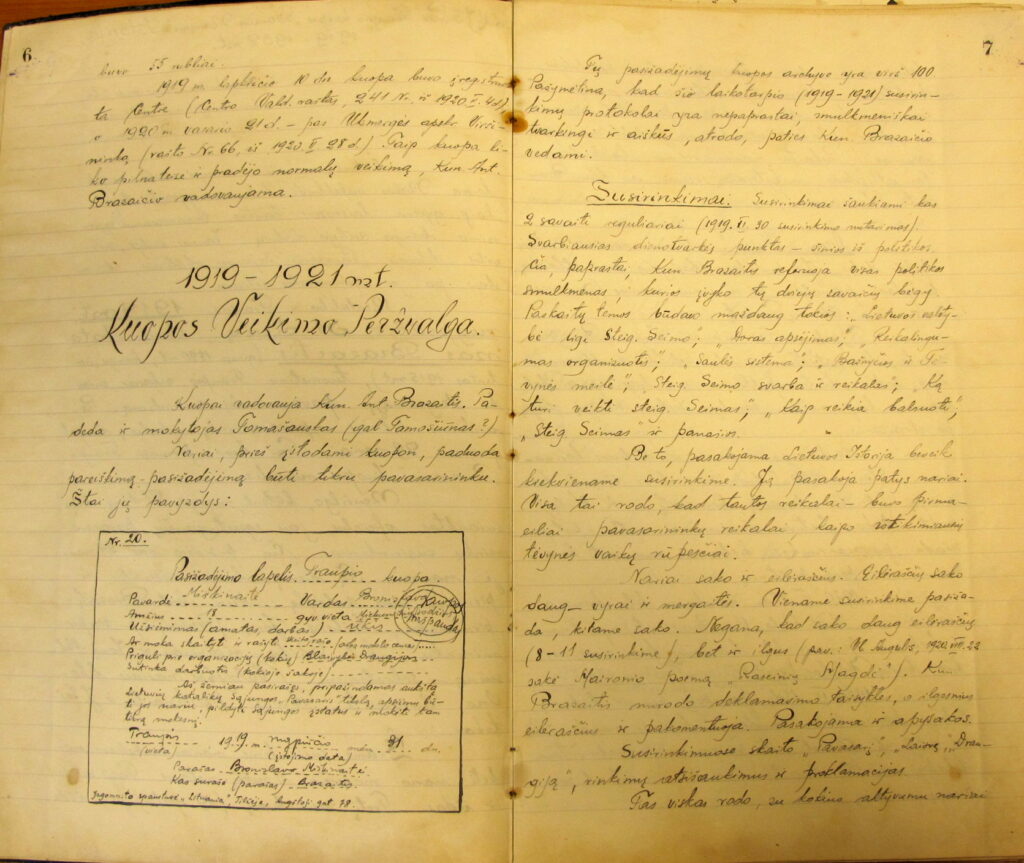 6
buvo 55 rubliai.
1919 m. lapkričio 10 dn. kuopa buvo įregistruo-
ta Centre (Centro Vald. raštas, 241 Nr. iš 1920 4 d.)
o 1920 m. vasario 21 d. – pas Ukmergės apskr. Virši-
ninką, (rašto Nr. 66, iš 1920. II. 28 d.). Taip kuopa li-
ko pilnateisė ir pradėjo normalų veikimą, Kun. Ant.
Brazaičio vadovaujama.
1919 – 1921 mt.
Kuopos Veikimo Peržvalga.
Kuopai vadovauja Kun. Ant. Brazaitis. Pa-
deda ir mokytojas Tamašauskas (gal Tamošiūnas?)
Nariai, prieš įstodami kuopon, paduoda
pareiškimą-pasižadėjimą būti tikru pavasarininku.
Štai jų pavyzdys:
Nr. 20.
Pasižadėjimo lapelis. Traupio kuopa.
Pavardė Miškinaitė Vardas Bronislava
Amžius 17 gyv. vieta
Užsiėmimas (amatas, darbas) ūkis
Ar moka skaityti ir rašyti skaito rašo /arba mokslo cenzas/
Priguli prie organizacijų (kokių) Blaivybės Draugijos
Sutinka darbuotis (kokioje šakoje)
Aš, žemiau pasirašęs, pripažindamas aukštą
Lietuvių katalikų Sąjungos „Pavasario" tikslą, apsiimu bū-
ti jos nariu, pildyti Sąjungos įstatus ir mokėti tam
tikrą mokesnį.
Traupis 1919 m. rugpiučio mėn. 31 dn.
(vieta) (įstojimo data)
Parašas Bronislava Miškinaitė
Kas surašė (parašas) Brazaitis
Jagomasto spaustuvė „Lituania", Tilžėje, Augštoji gat. 78.
Kuopos
Antspauda
7
Tų pasižadėjimų kuopos archyve yra virš 100.
Pažymėtina, kad šio laikotarpio (1919–1921) susirin-
kimų protokolai yra nepaprastai, smulkmeniškai
tvarkingi ir aiškūs, atrodo, paties Kun. Brazaičio
vedami.
Susirinkimai. Susirinkimai šaukiami kas
2 savaiti reguliariai (1919. XI 30 susirinkimo nutarimas).
Svarbiausias dienotvarkės punktas – žinios iš politikos.
Čia, paprastai, Kun. Brazaitis referuoja visas politikos
smulkmenas, kurios įvyko tų dviejų savaičių bėgy.
Paskaitų temos būdavo maždaug tokios: „Lietuvos valsty-
bė ligi Steig. Seimo"; „Doras apsėjimas"; „Reikalingu-
mas organizuotis"; „Saulės sistema"; „Bažnyčios ir Tė-
vynės meilė"; „Steig. Seimo svarba ir reikalas"; „Ką
turi veikti steig. Seimas"; „Kaip reikia balsuoti";
„Steig. Seimas" ir panašios.
Be to, pasakojama Lietuvos Istorija beveik
kiekviename susirinkime. Ją pasakoja patys nariai.
Visa tai rodo, kad tautos reikalai – buvo pirma-
eiliai pavasarininkų reikalai, kaipo ištikimiausių
tėvynės vaikų rūpesčiai.
Nariai sako ir eilėraščius. Eilėraščių sako
daug – vyrai ir mergaitės. Viename susirinkime pasiža-
da, kitame sako. Negana, kad sako daug eilėraščių
(8–11 susirinkime), bet ir ilgus (pav.: M. Augelis, 1920. VIII. 22
sakė Maironio poemą „Raseinių Magdė"). Kun.
Brazaitis nurodo deklamavimo taisykles, o ilgesnius
eilėraščius ir pakomentuoja. Pasakojama ir apysakos.
Susirinkimuose skaito „Pavasarį", „Laisvę", „Drau-
giją", rinkimų atsišaukimus ir proklamacijas.
Tas viskas rodo, su kokiu aktyvumu nariai